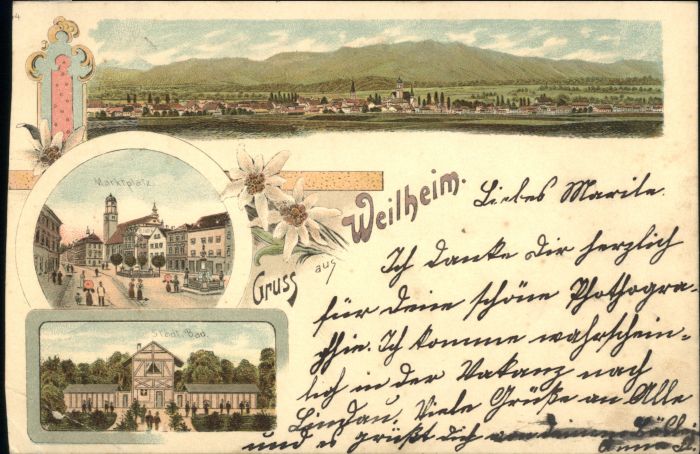 Marktplatz.
Städt. Bad.
Gruss aus Weilheim.
Liebes Marile.
Ich danke Dir herzlich
für deine schöne Photogra-
phie. Ich komme wahrschein-
lich in der Vakanz nach
Lindau. Viele Grüße an Alle
und es grüßt dich von deinem
Anna